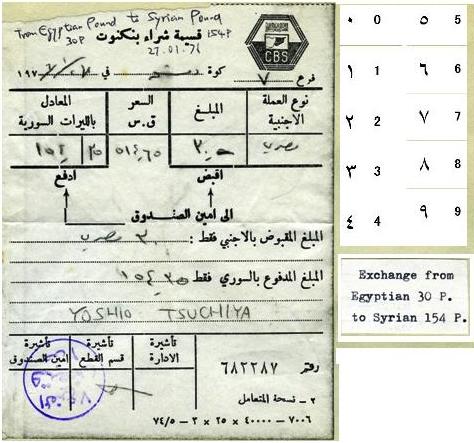 From Egyptian Pound to Syrian Pound
30P
قسيمة شراء بنكنوت
154P
27.01.76
CBS
فرع ٧ كوة في ١٩٧
نوع العملة الاجنبية
المبلغ
السعر ق.س
المعادل بالليرات السورية
مصري
٣٠
٥١٤,٦٥
١٥٤
اقبض
ادفع
الى امين الصندوق
المبلغ المقبوض بالاجنبي فقط : ٣٠ مصري
المبلغ المدفوع بالسوري فقط
YOSHIO TSUCHIYA
تأشيرة الادارة
تأشيرة قسم القطع
تأشيرة امين الصندوق
رقم ٦٨٢٢٨٧
٢ - نسخة المتعامل
٧٠٠٦ - ٤٠٠٠٠ × ٢٥ × ٣ - ٧٤/٥
٠ 0 ٥ 5
١ 1 ٦ 6
٢ 2 ٧ 7
٣ 3 ٨ 8
٤ 4 ٩ 9
Exchange from
Egyptian 30 P.
to Syrian 154 P.